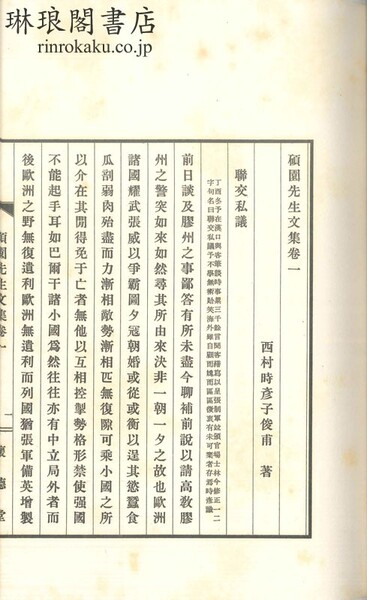 琳琅閣書店
rinrokaku.co.jp
碩園先生文集卷一
西村時彥子俊甫 著
聯交私議
丁酉冬予在漢口與客筆談時事累三千餘言閱客繕寫以呈張制軍
字句名曰聯交私議予不學無術貽笑海外雖自顧而愧而區區復衷有未可棄者存焉時彥識
前日談及膠州之事鄙答有所未盡今聊補前說以請高敎膠
州之警突如來如然尋其所由來決非一朝一夕之故也歐洲
諸國耀武張威以爭霸圖夕冠朝婚或從或衡以逞其慾蠶食
瓜剖弱肉殆盡而力漸相敵勢漸相匹無復隙可乘小國之所
以介在其間得免于亡者無他以互相控掣勢格形禁使强國
不能起手耳如巴爾干諸小國爲然往往亦有中立局外者而
後歐洲之野無復遺利歐洲無遺利而列國猶張軍備英增製
碩園先生文集卷一
一
懷德堂